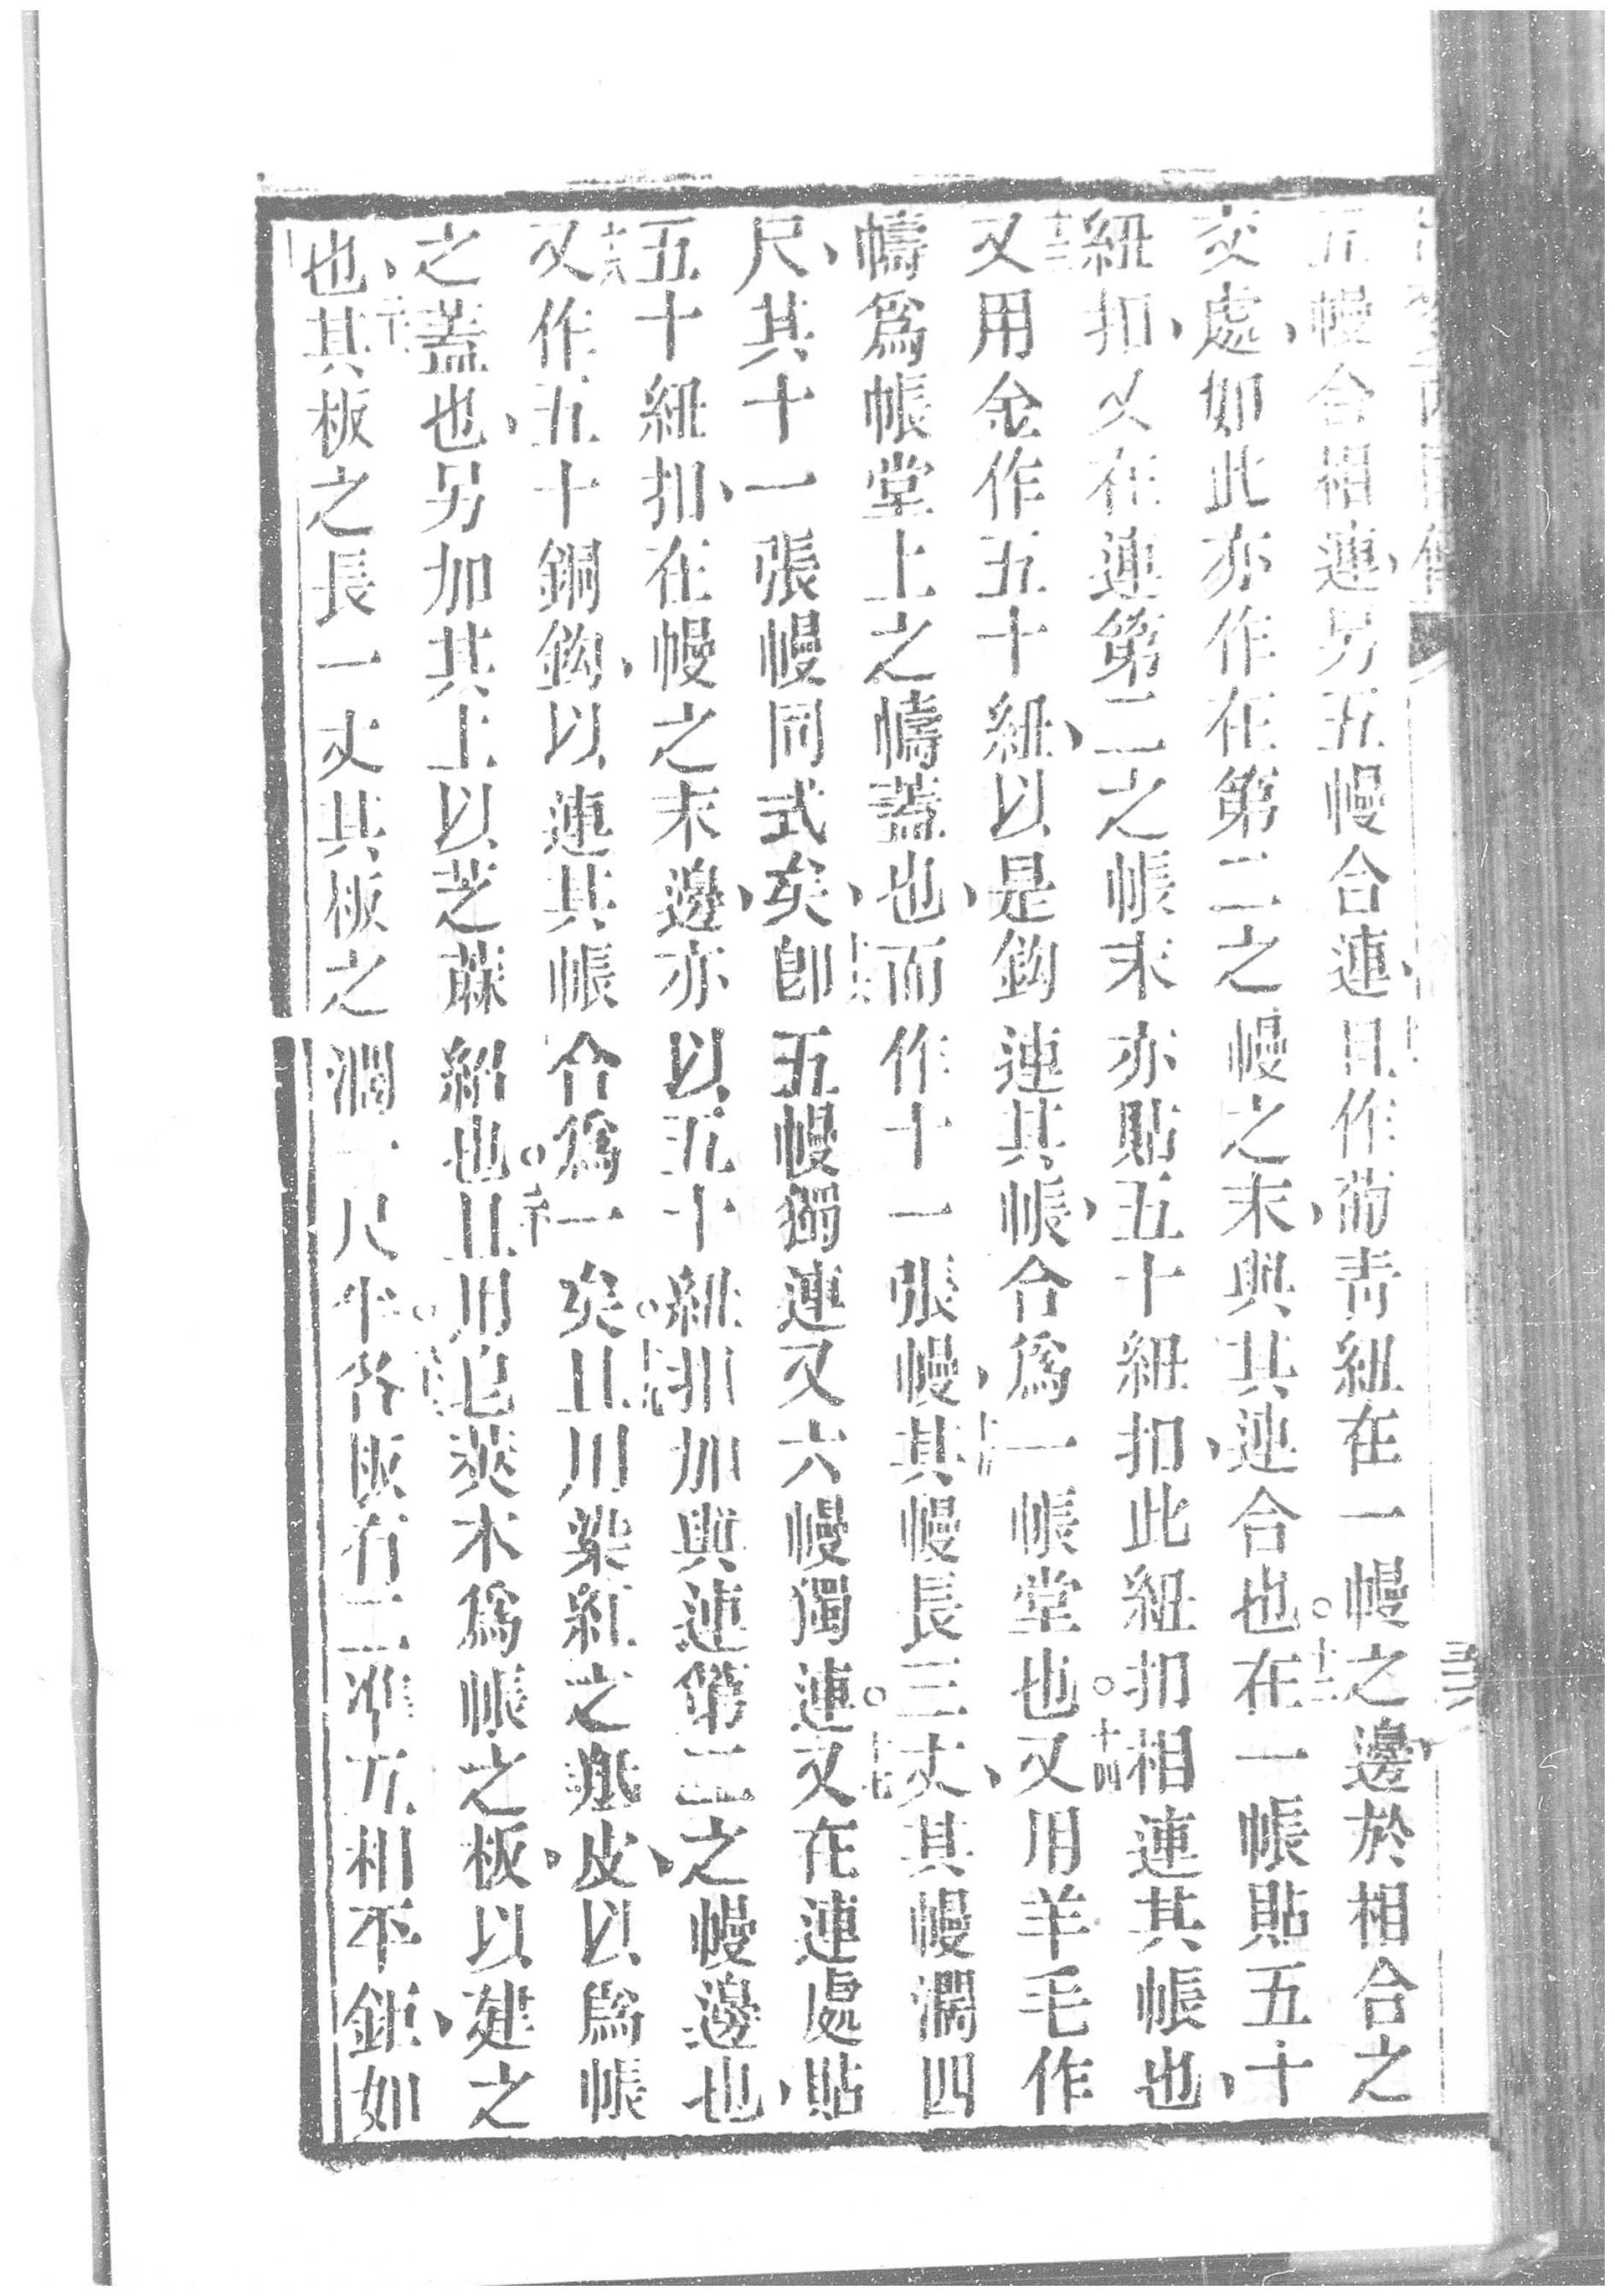 五幔合相連、另五幔合連、且作葡青紐在一幔之邊、於相合之
交處、如此亦作在第二之幔之末、與其連合也。十二在一帳貼五十
紐扣、又在連第二之帳末亦貼五十紐扣、此紐扣相連其帳也、
十三又用金作五十紐、以是鈎連其帳、合爲一帳堂也。十四又用羊毛作
幬爲帳堂上之幬蓋也、而作十一張幔、十五其幔長三丈、其幔濶四
尺、其十一張幔同式矣、十六卽五幔獨連又六幔獨連。十七又在連處貼
五十紐扣、在幔之末邊、亦以五十紐扣加與連第二之幔邊也、
十八又作五十銅鈎、以連其帳合爲一矣。十九且用染紅之羝皮、以爲帳
之蓋也、另加其上以芝蔴紹也。二十且用皂莢木爲帳之板、以建之
也、其板之長一丈其板之濶一尺半。各板有二凖方相平鉅、如